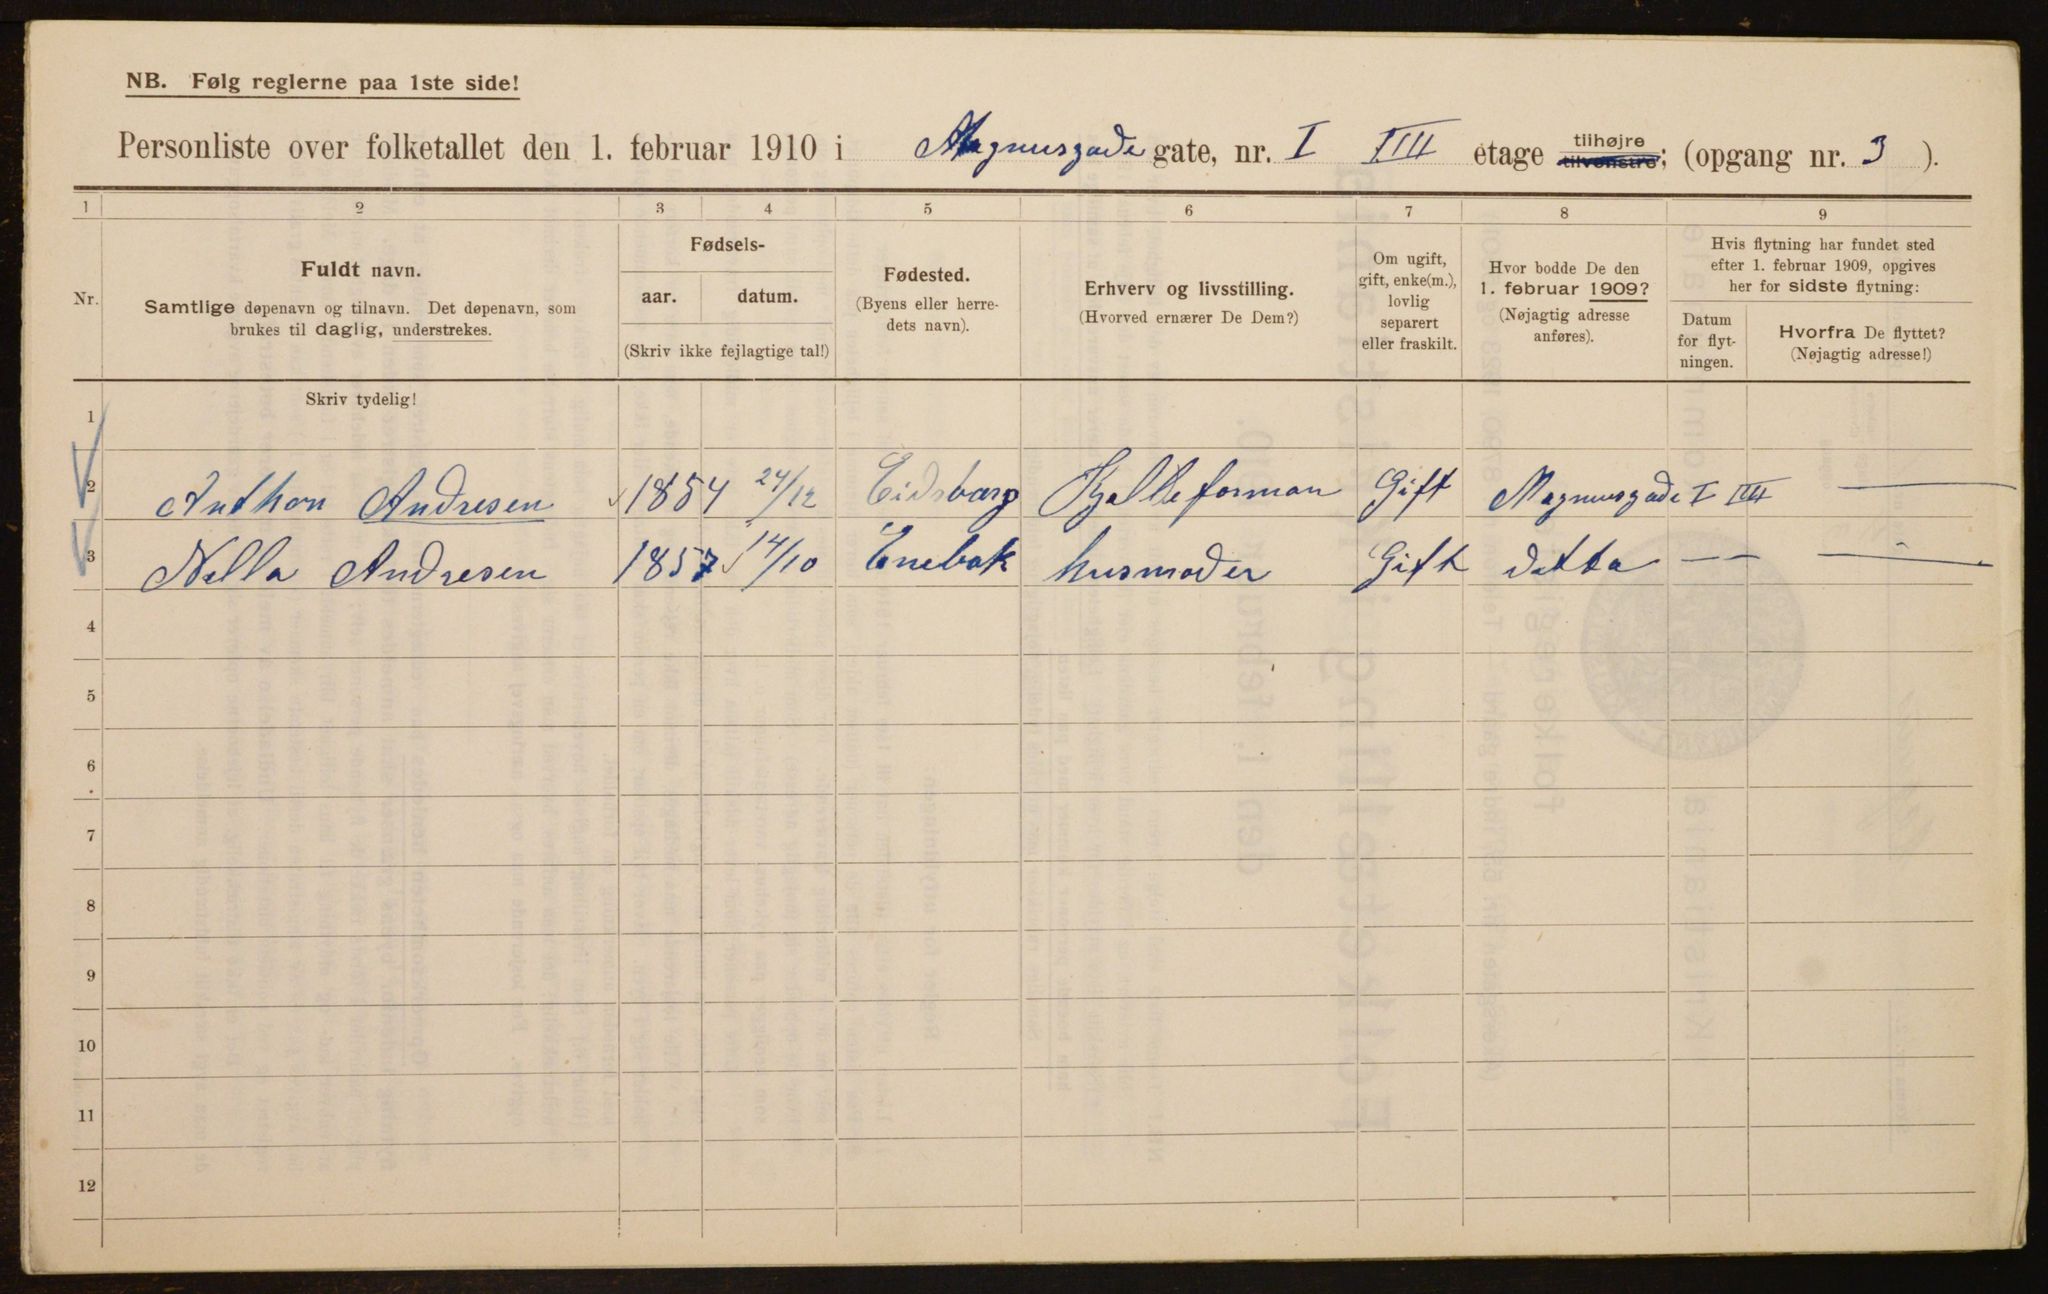 NB. Følg reglerne paa 1ste side!
Personliste over folketallet den 1. februar 1910 i Magnusgade gate, nr. I IIII etage tilhøjre tilvenstre; (opgang nr. 3 ).
1 2 3 4 5 6 7 8 9
Nr.
Fuldt navn.
Samtlige døpenavn og tilnavn. Det døpenavn, som
brukes til daglig, understrekes.
Fødsels-
aar. datum.
(Skriv ikke fejlagtige tal!)
Fødested.
(Byens eller herre-
dets navn).
Erhverv og livsstilling.
(Hvorved ernærer De Dem?)
Om ugift,
gift, enke(m.),
lovlig
separert
eller fraskilt.
Hvor bodde De den
1. februar 1909?
(Nøjagtig adresse
anføres).
Hvis flytning har fundet sted
efter 1. februar 1909, opgives
her for sidste flytning:
Datum
for flyt-
ningen.
Hvorfra De flyttet?
(Nøjagtig adresse!)
Skriv tydelig!
1
2 Anthon Andresen 1854 24/12 Eidsberg Gift Magnusgade I IIII —
3 Nella Andresen 1857 14/10 Enebak husmoder Gift detta — —
4
5
6
7
8
9
10
11
12